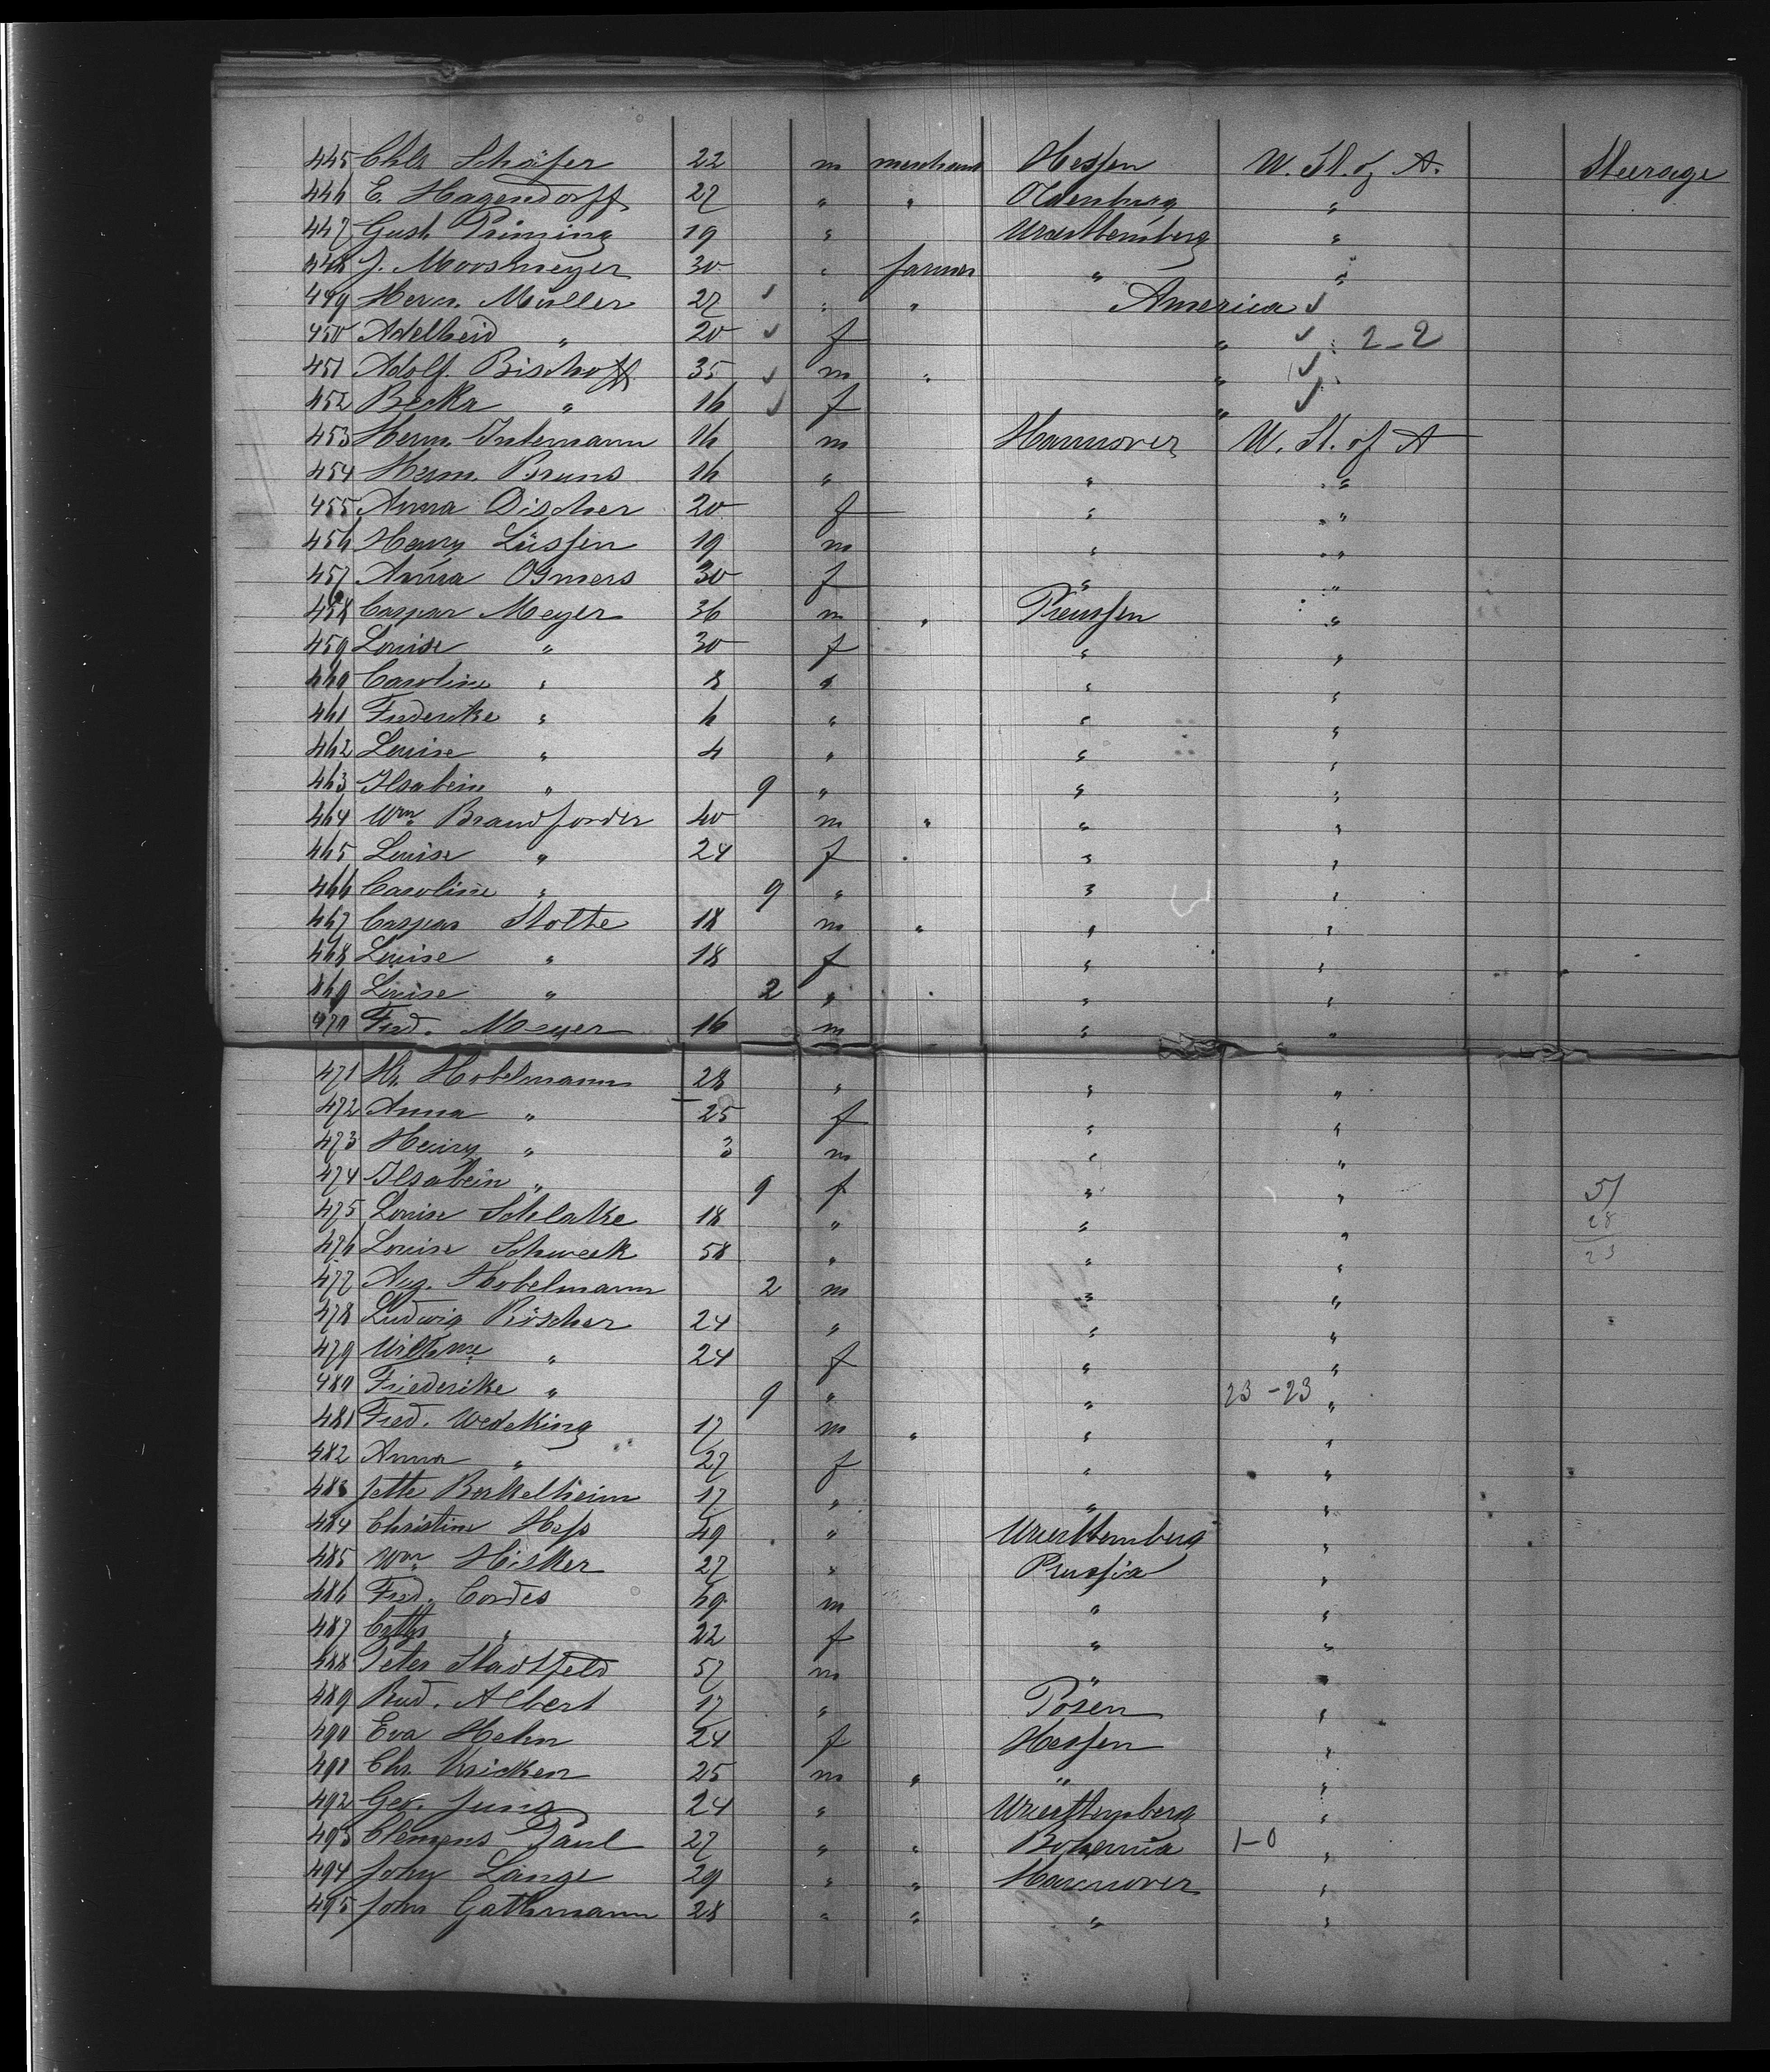 445 Chls Schäfer 22 m merchant Hessen U. St. of A. Steerage
446 E. Hagendorff 27 " " Oldenburg "
447 Gust. Priming 19 " Wuerttemberg "
448 J. Moosmeyer 30 " farmer " "
449 Herm. Müller 27 ✓ " " America ✓
450 Adelheid " 20 ✓ f " ✓ 2-2
451 Adolf. Bischoff 35 ✓ m " " ✓
452 Becka " 16 ✓ f " ✓
453 Herm. Intemann 16 m Hannover U. St. of A
454 Herm. Bruns 16 " " "
455 Anna Discher 20 f " "
456 Henry Lüssen 19 m " "
457 Anna Osmers 30 f " "
458 Caspar Meyer 36 m " Preussen "
459 Louise " 30 f " "
460 Caroline " 8 " " "
461 Friederike " 6 " " "
462 Louise " 4 " " "
463 Ilsabein " 9 " " "
464 Wm Brandforder 40 m " " "
465 Louise " 24 f " "
466 Caroline " 9 " " "
467 Caspar Stolte 18 m " " "
468 Louise " 18 f " "
469 Louise " 2 " " "
470 Fred. Meyer 16 m " "
471 Hobelmann 28 " " "
472 Anna " 25 f " "
473 Heinry " 3 m " "
474 Ilsabein " 9 f " " 51
475 Louise Schlake 18 " " " 28
476 Louise Schweck 58 " " " 23
477 Aug. Hobelmann 2 m " "
478 Ludwig Röscher 24 " " "
479 Wilhme " 24 f " "
480 Friederike " 9 " " 23-23 "
481 Fred. Wedeking 17 m " " "
482 Anna " 27 f " "
483 Jette Borkelheim 17 " " "
484 Christine Hess 49 " Wuerttemberg "
485 Wm Hisker 27 " Prussia "
486 Fred. Cordes 49 m " "
487 Cathr " 22 f " "
488 Peter Stadtfeld 57 m " "
489 Rud. Albert 17 " Posen "
490 Eva Hehn 24 f Hessen "
491 Chr. Kricken 25 m " " "
492 Geo. Jung 24 " Wuerttemberg "
493 Clemens Paul 27 " " Bohemia 1-0 "
494 John Lange 29 " " Hannover "
495 John Gathmann 28 " " " "